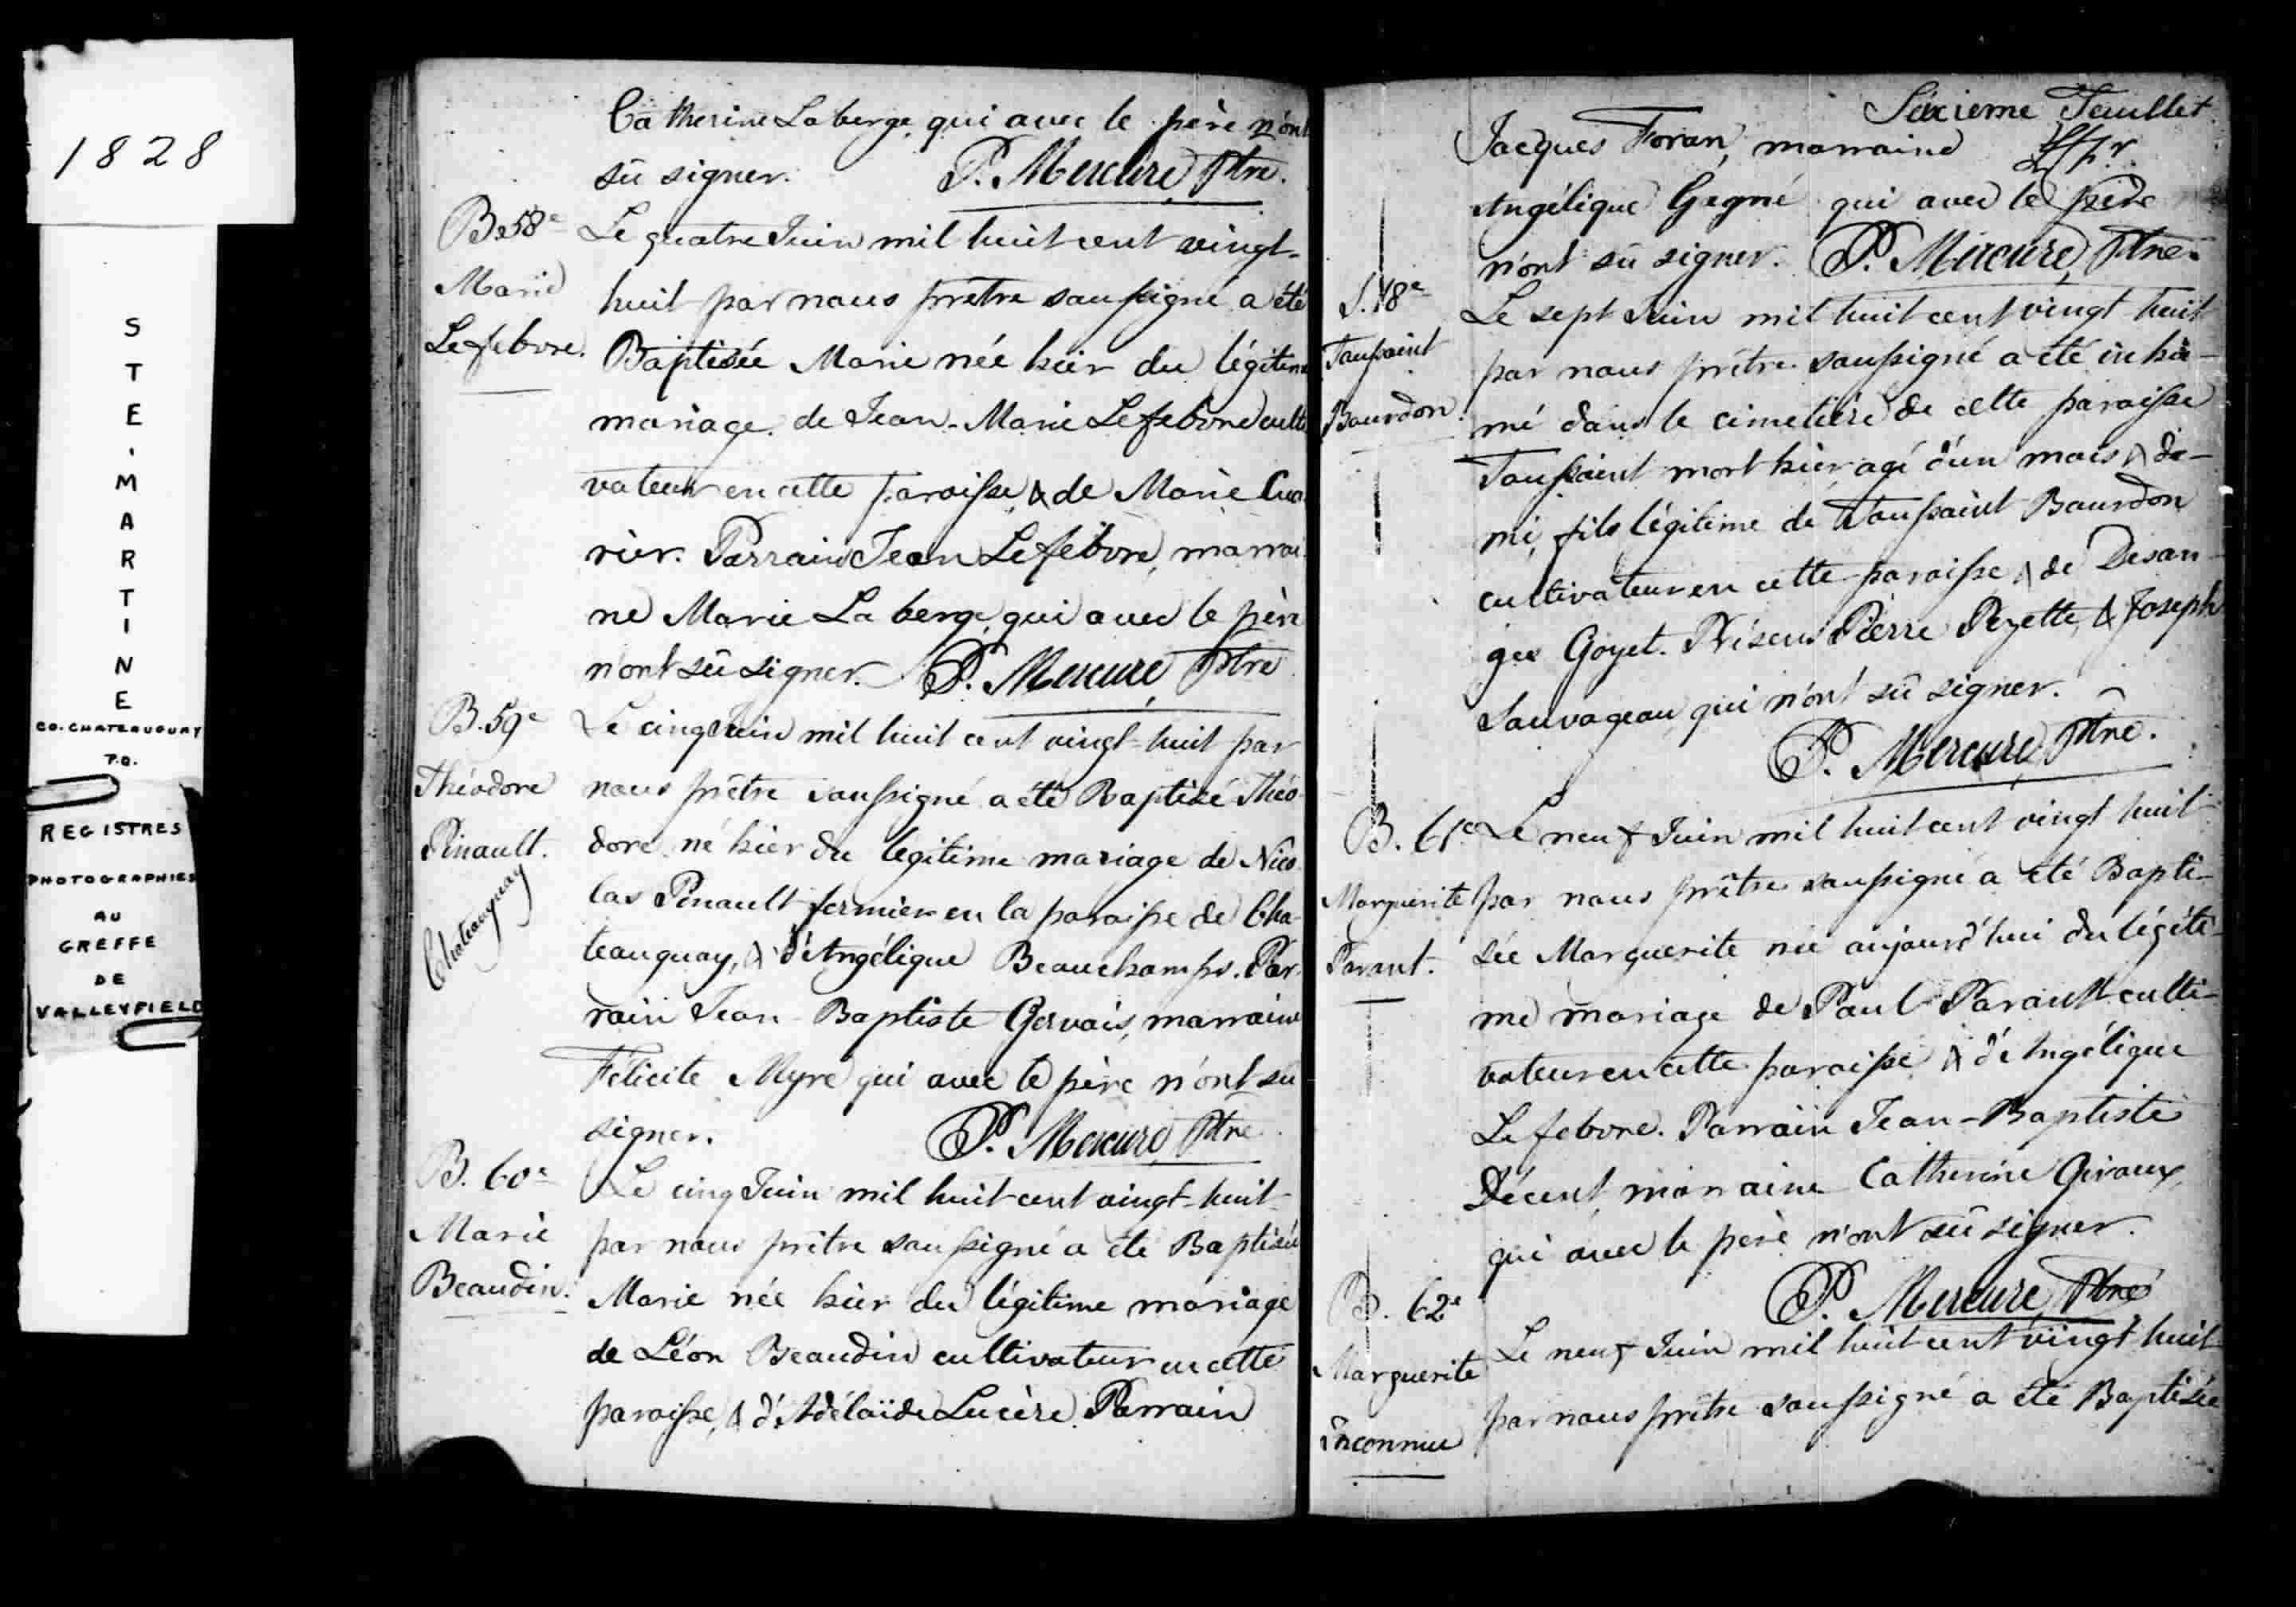 1828
STE. MARTINE
CO. CHATEAUGUAY
P.Q.
REGISTRES
PHOTOGRAPHIES
AU
GREFFE
DE
VALLEYFIELD
Catherine Laberge, qui avec le père n'ont
sû signer. P. Mercure, Ptre.
B. 58e
Marie
Lefebvre.
Le quatre Juin mil huit cent vingt-
huit par nous prêtre soussigné a été
Baptisée Marie née hier du légitime
mariage de Jean-Marie Lefebvre culti
vateur en cette paroisse, & de Marie
rier. Parrain Jean Lefebvre, marrai
ne Marie Laberge, qui avec le père
n'ont sû signer. P. Mercure, Ptre
B. 59e
Théodore
Pinault.
Chateauguay
Le cinq Juin mil huit cent vingt-huit par
nous prêtre soussigné a été Baptisé Théo
dore né hier du légitime mariage de Nico
las Pinault fermier en la paroisse de Cha-
teauguay, & d'Angélique Beauchamps. Par-
rain Jean-Baptiste Gervais, marraine
Félicité Myre qui avec le père n'ont sû
signer. P. Mercure, Ptre
B. 60e
Marie
Beaudin.
Le cinq Juin mil huit cent vingt-huit
par nous prêtre soussigné a été Baptisée
Marie née hier du légitime mariage
de Léon Beaudin cultivateur en cette
paroisse, & d'Adélaïde Lucère. Parrain
Sixieme Feuillet
Jacques Foran, marraine
Angélique Gagné qui avec le père
n'ont sû signer. P. Mercure, Ptre.
S. 18e
Toussaint
Bourdon
Le sept Juin mil huit cent vingt huit
par nous prêtre soussigné a été inhu-
mé dans le cimetière de cette paroisse
Toussaint mort hier, agé d'un mois & de-
mi, fils légitime de Toussaint Bourdon
cultivateur en cette paroisse & de Desan-
ges Goyet. Présens Pierre Pezette, & Joseph
Sauvageau, qui n'ont sû signer.
P. Mercure, Ptre.
B. 61e
Marguerite
Parant.
Le neuf Juin mil huit cent vingt huit
par nous prêtre soussigné a été Bapti-
sée Marguerite née aujourd'hui du légiti-
me mariage de Paul Parant culti-
vateur en cette paroisse & d'Angélique
Lefebvre. Parrain Jean-Baptiste
Décent, marraine Catherine Giroux,
qui avec le père n'ont sû signer.
P. Mercure, Ptre
B. 62e
Marguerite
Inconnue
Le neuf Juin mil huit cent vingt huit
par nous prêtre soussigné a été Baptisée